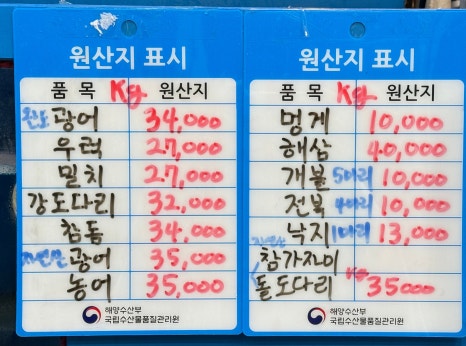 원산지 표시
품 목 Kg 원산지
완도 광어 34,000
우럭 27,000
밀치 27,000
강도다리 32,000
참돔 34,000
자연산 광어 35,000
농어 35,000
해양수산부
국립수산물품질관리원
원산지 표시
품 목 Kg 원산지
멍게 10,000
해삼 40,000
개불 5마리 10,000
전복 4마리 10,000
낙지 1마리 13,000
자연산
참가자미
돌도다리 KG 35000
해양수산부
국립수산물품질관리원